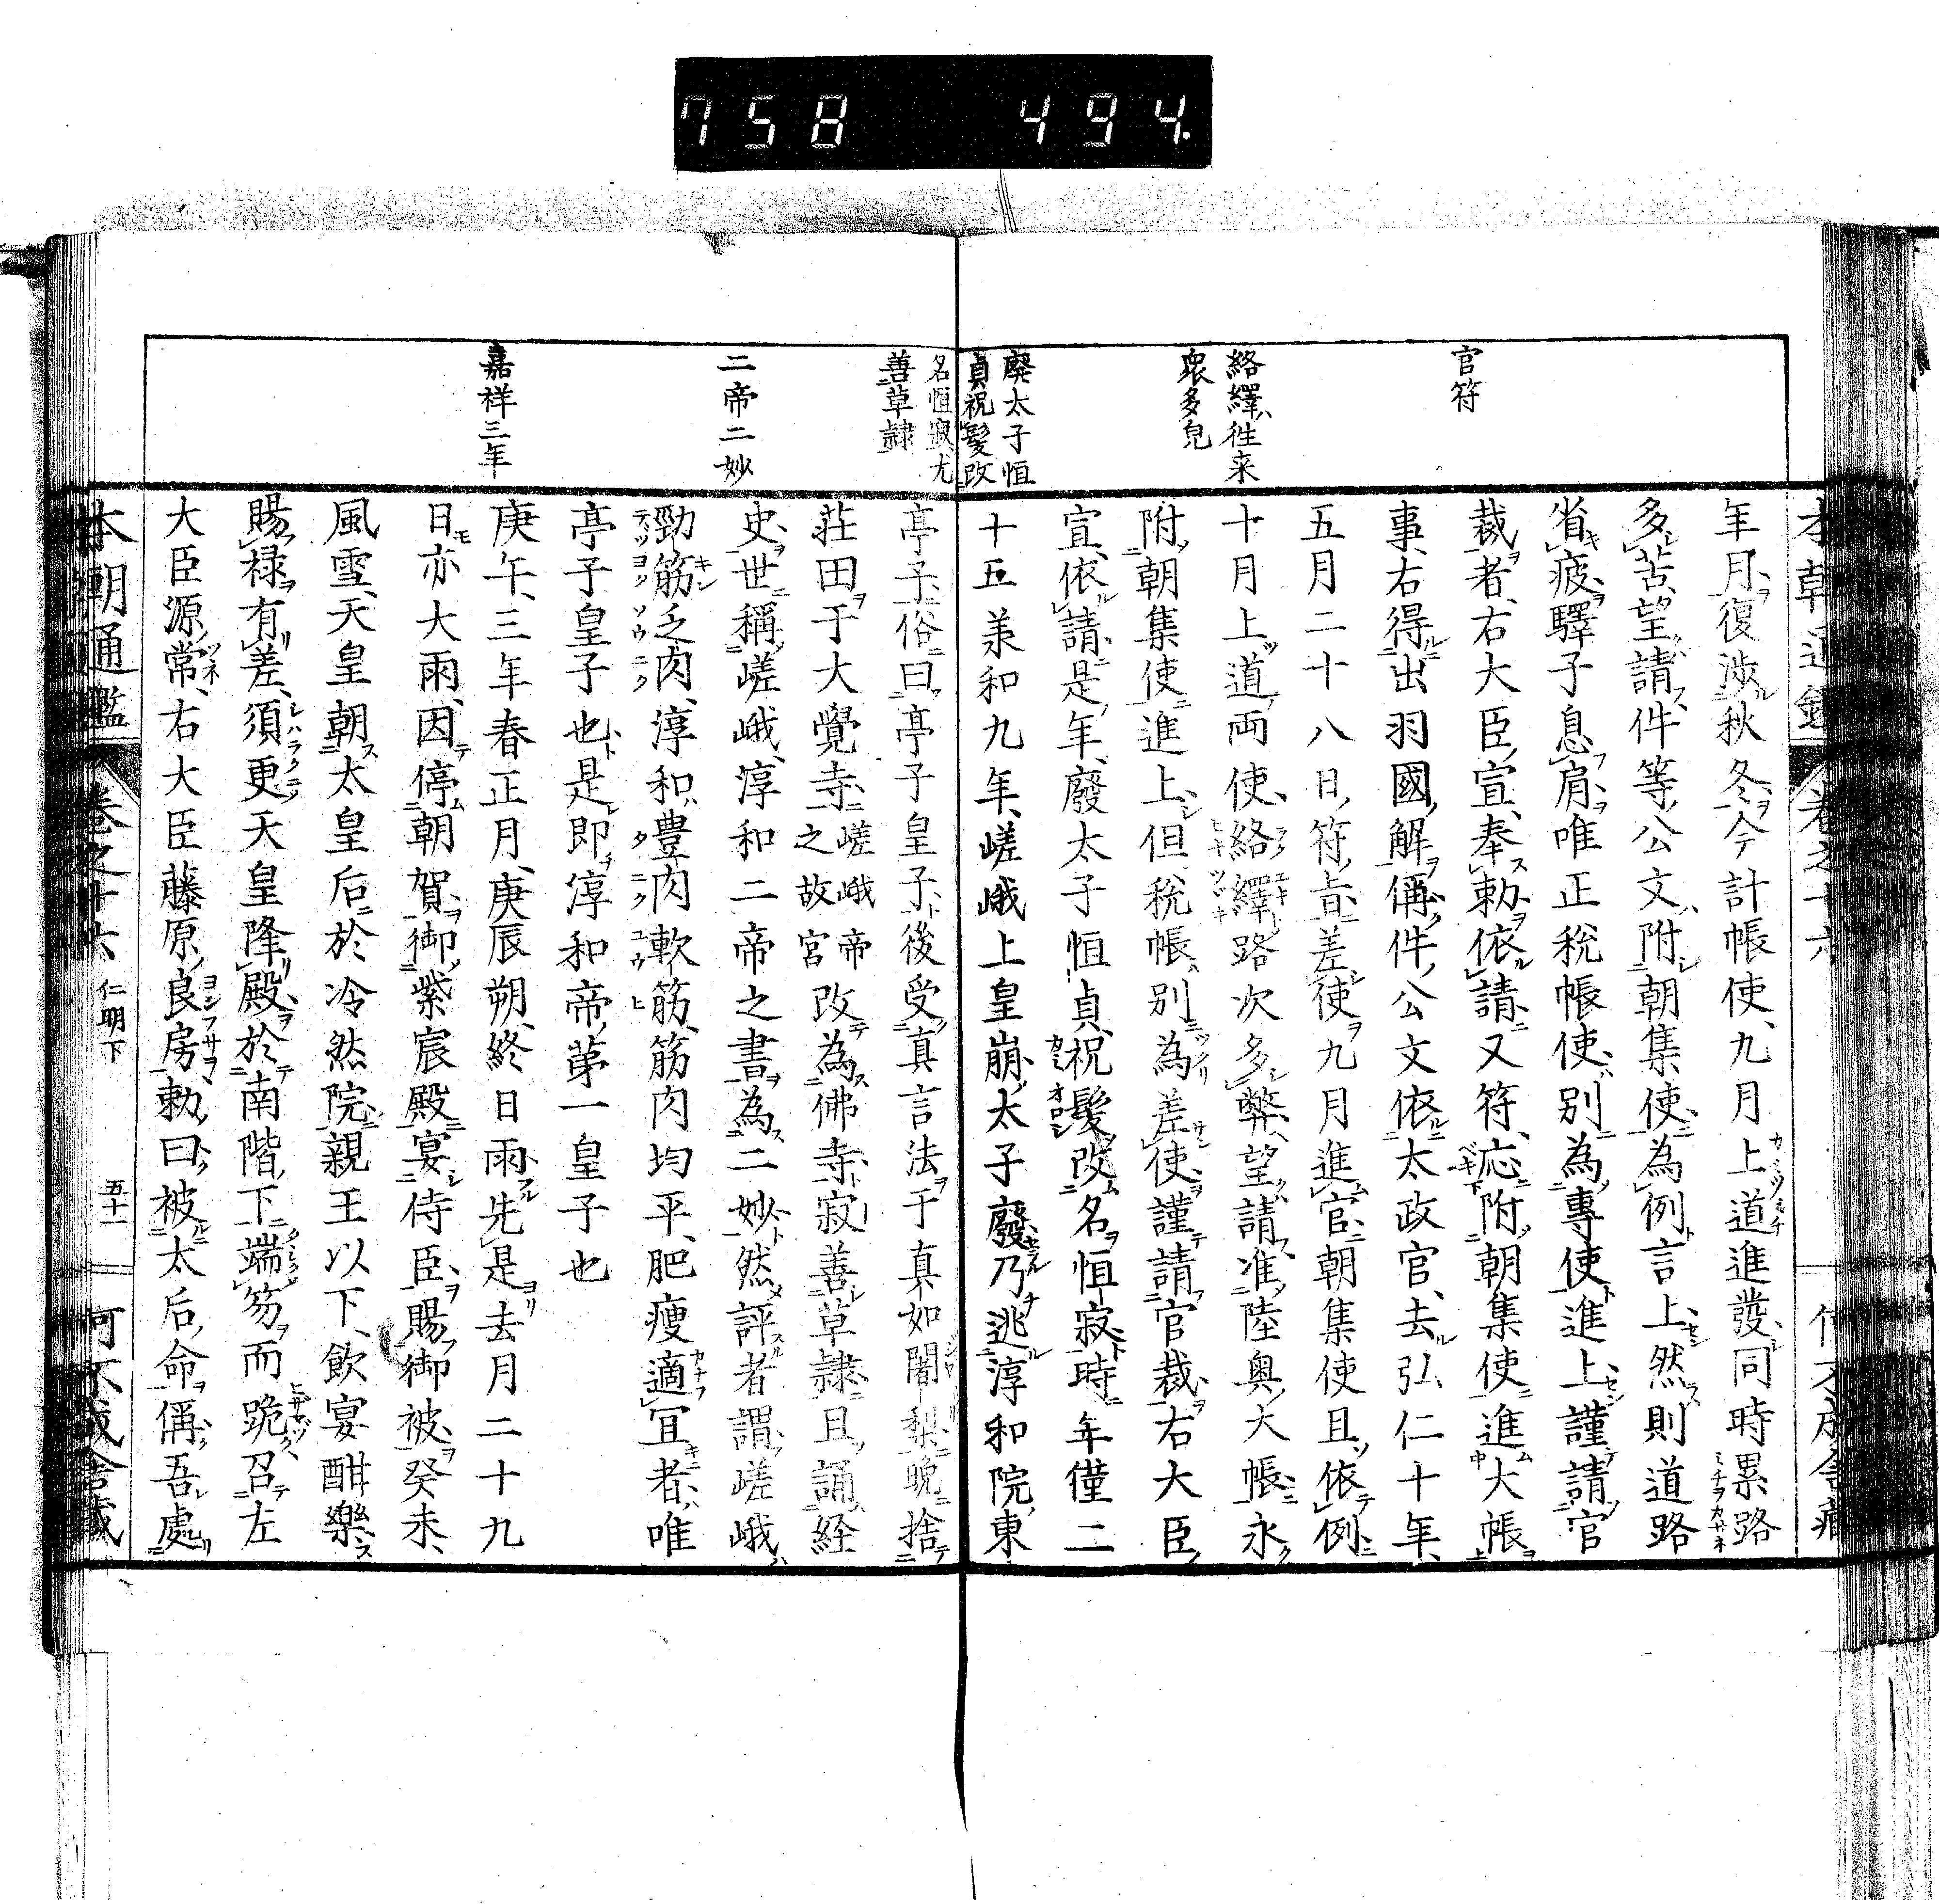 758 494.
本朝通鑑 卷之十六
官符
絡繹往来
衆多皃
廢太子恒
貞祝髪改
名恒寂尤
善草隷
二帝二妙
嘉祥三年
年月復渉秋冬今計帳使九月上道進發同時累路
多苦望請件等公文附朝集使為例言上然則道路
省疲驛子息肩唯正税帳使別為專使進上謹請官
裁者右大臣宣奉勅依請又符応附朝集使進大帳
事右得出羽國解偁件公文依太政官去弘仁十年
五月二十八日符旨差使九月進官朝集使且依例
十月上道両使絡繹路次多弊望請准陸奥大帳永
附朝集使進上但税帳別為差使謹請官裁右大臣
宣依請是年廢太子恒貞祝髪改名恒寂時年僅二
十五羕和九年嵯峨上皇崩太子廢乃逃淳和院東
亭子俗曰亭子皇子後受真言法于真如闍梨晩捨
荘田于大覺寺嵯峨帝之故宮改為佛寺寂善草隷且誦経
史世稱嵯峨淳和二帝之書為二妙然評者謂嵯峨
勁筋乏肉淳和豊肉軟筋筋肉均平肥痩適宜者唯
亭子皇子也是即淳和帝第一皇子也
庚午三年春正月庚辰朔終日雨先是去月二十九
日亦大雨因停朝賀御紫宸殿宴侍臣賜御被癸未
風雪天皇朝太皇后於冷然院親王以下飲宴酣樂
賜禄有差須更天皇降殿於南階下端笏而跪召左
大臣源常右大臣藤原良房勅曰被太后命偁吾處
本朝通鑑 卷之十六 仁明下 五十一